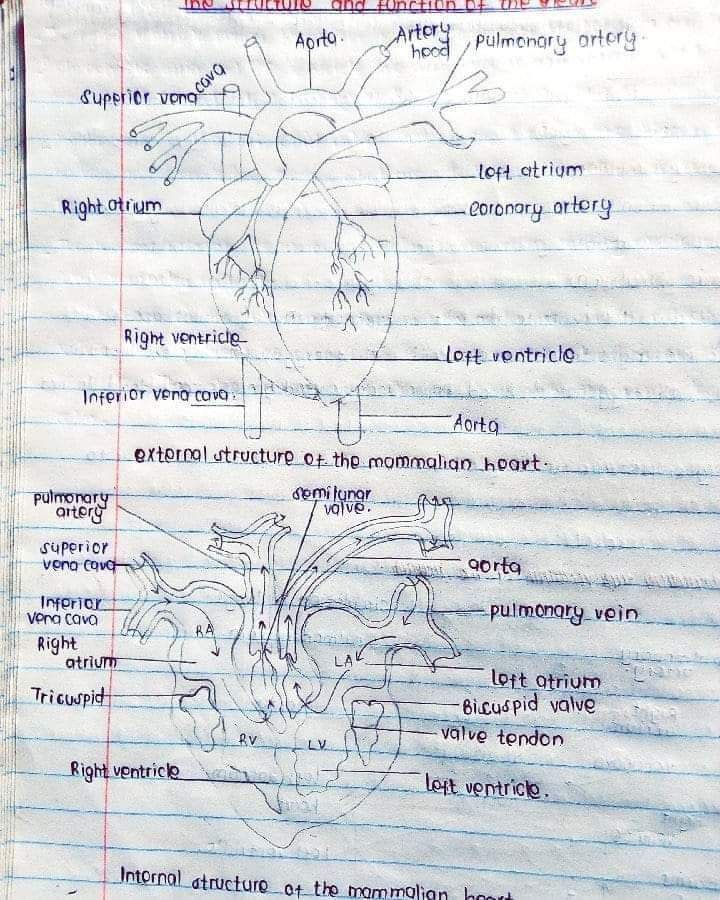 The structure and function of the Heart
Aorta.
Artery
hood
pulmonary artery.
superior vena cava
left atrium
Right atrium
coronary artery
Right ventricle
left ventricle
Inferior vena cava.
Aorta
external structure of the mammalian heart.
pulmonary
artery
semilunar
valve.
superior
vena cava
aorta
Inferior
vena cava
pulmonary vein
RA
Right
atrium
LA
left atrium
Tricuspid
Bicuspid valve
valve tendon
RV
LV
Right ventricle
left ventricle.
Internal structure of the mammalian heart